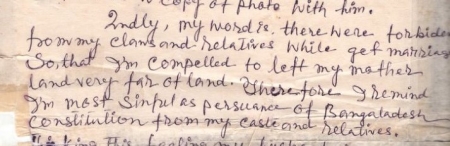 copy of photo with him.
2ndly, my word is there were forbiden
from my clans and relatives while get marriag
So, that I'm compelled to left my mother
land very far of land. Therefore I remind
I'm most Sinful as persuance of Bangaladesh
constitution from my caste and relatives.